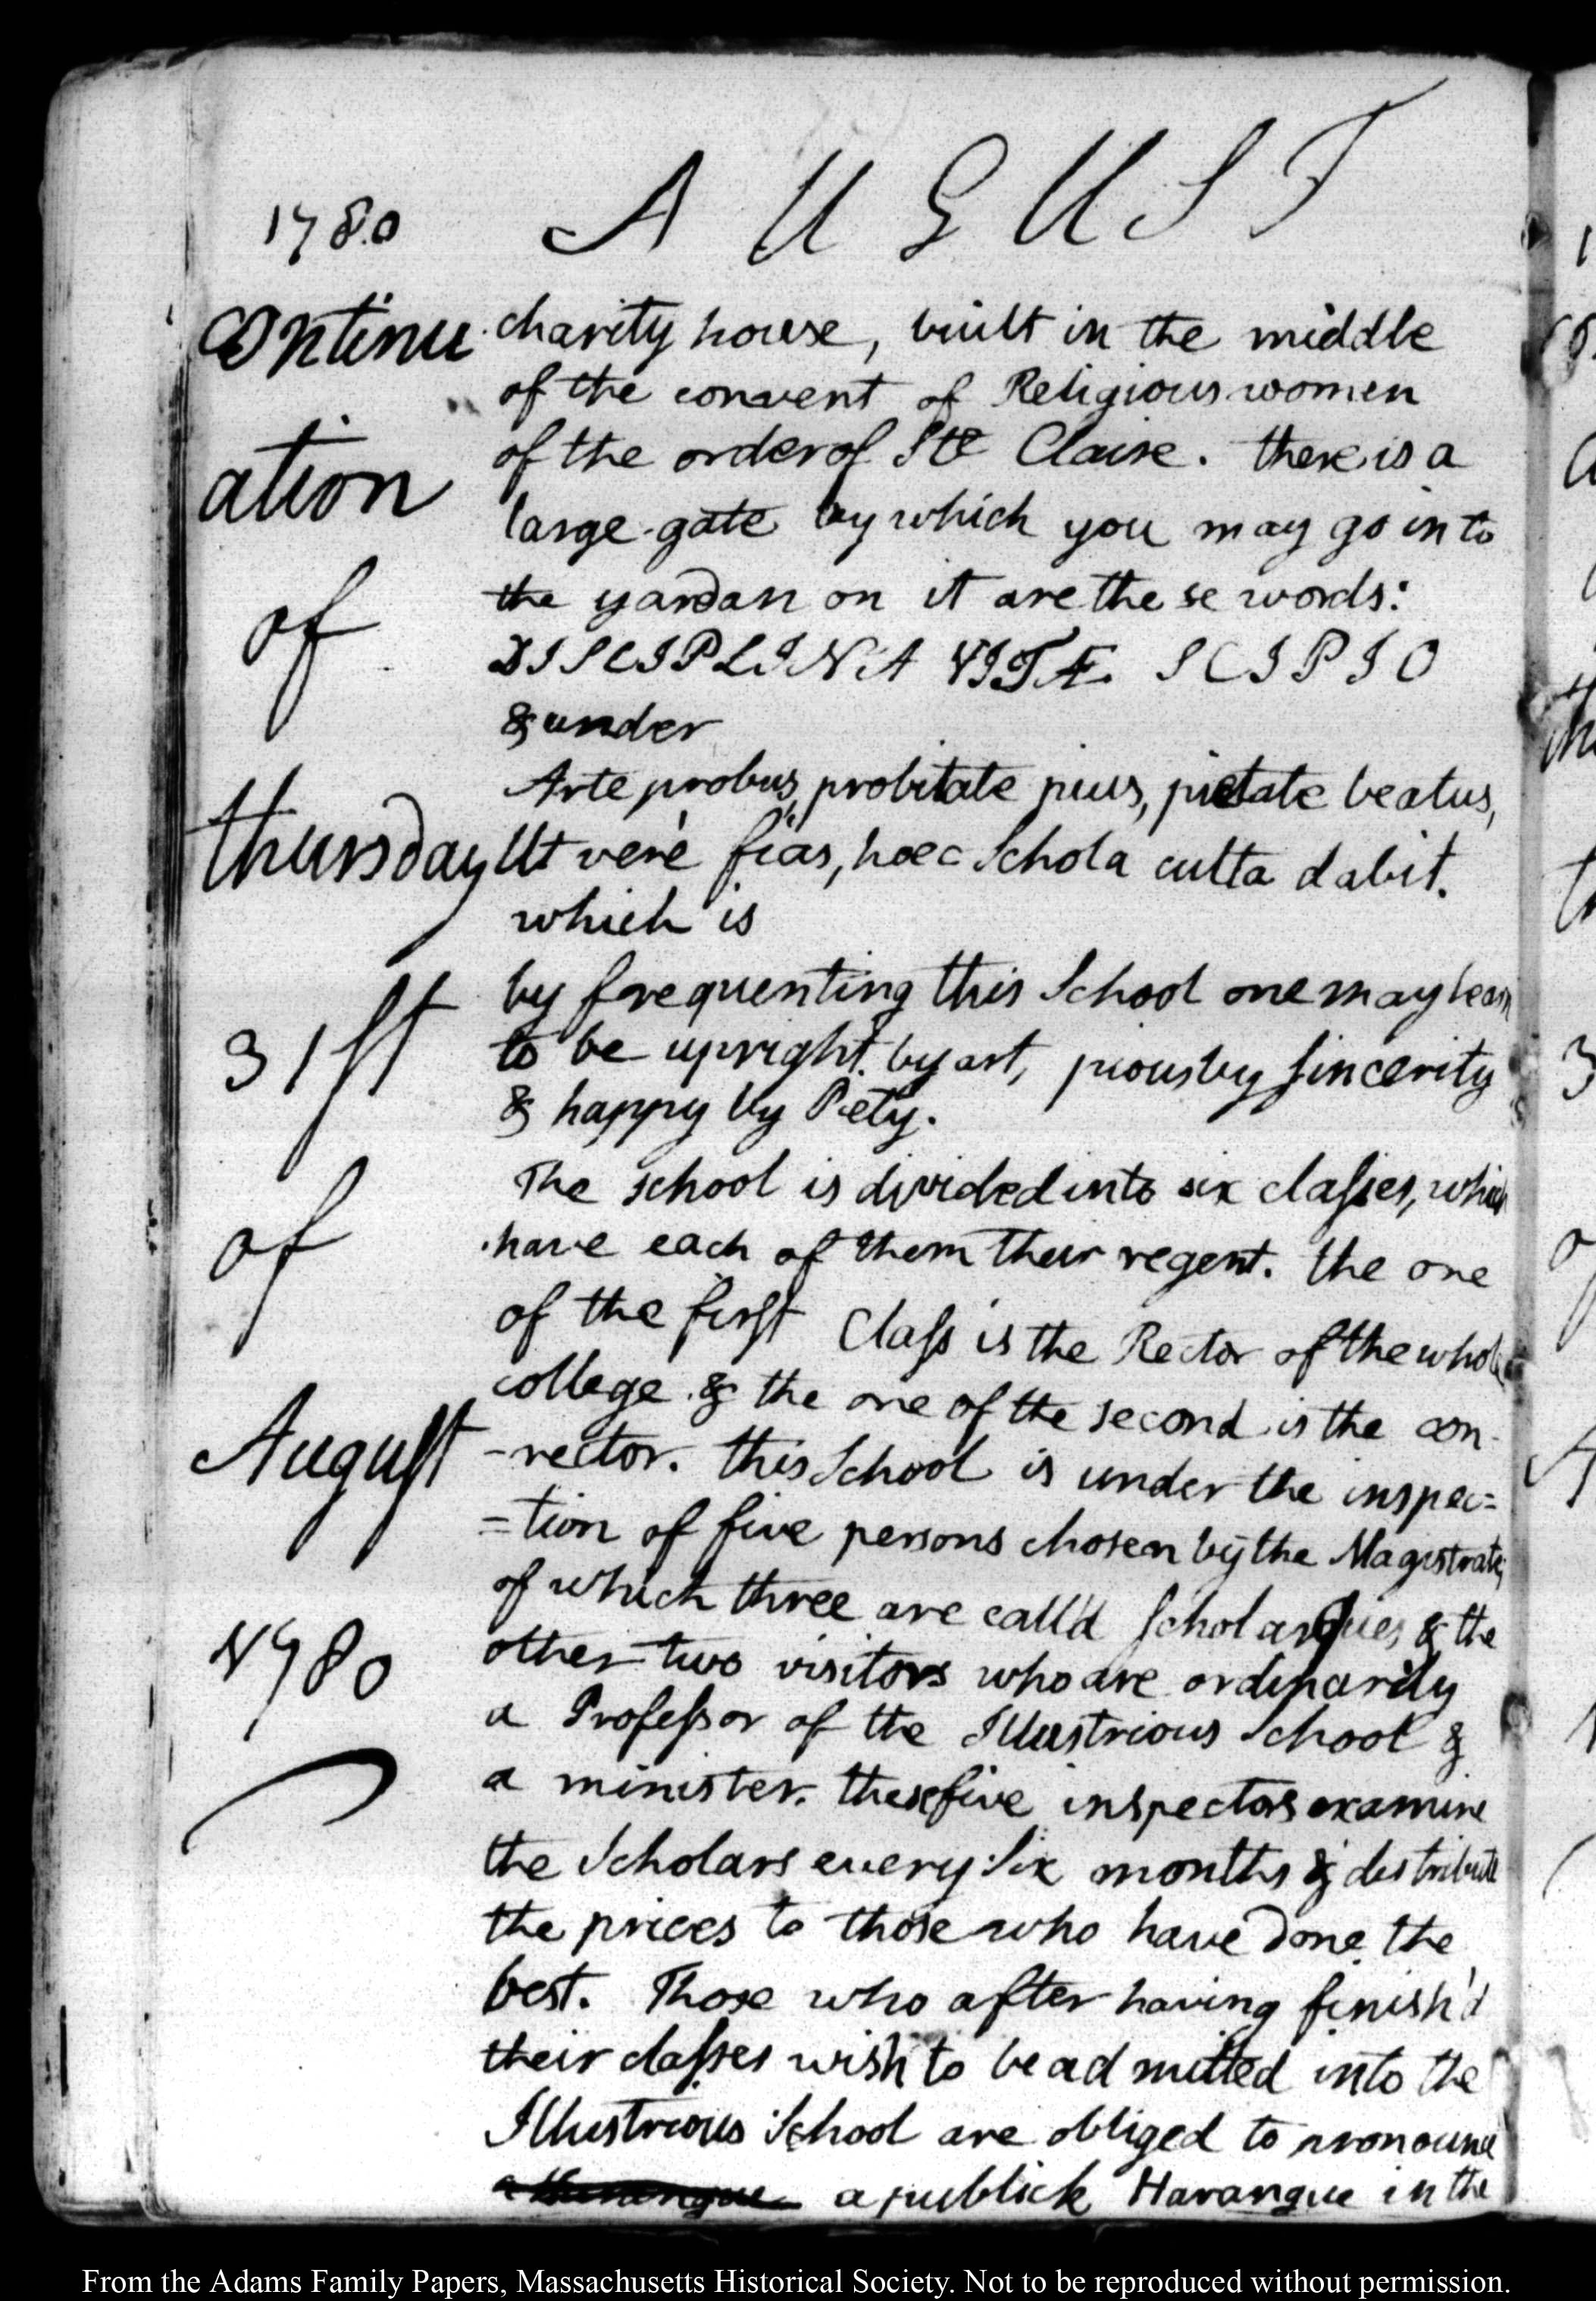 1780 AUGUST
Continu
ation
of
thursday
31st
of
August
1780
charity house, built in the middle
of the convent of Religious women
of the order of Ste Claire. there is a
large gate by which you may go into
the yard an on it are these words:
DISCIPLINA VITÆ SCIPIO
& under
Arte probus, probitate pius, pietate beatus,
Ut veré fias, hoec Schola culta dabit.
which is
by frequenting this School one may learn
to be upright by art, pious by sincerity
& happy by Piety.
The school is divided into six classes, which
have each of them their regent. the one
of the first Class is the Rector of the whole
college & the one of the second is the con-
-rector. this School is under the inspec=
=tion of five persons chosen by the Magistrate,
of which three are call'd Scholarques & the
other two visitors who are ordinarily
a Professor of the Illustrious School &
a minister. these five inspectors examine
the Scholars every Six months & distribute
the prices to those who have done the
best. Those who after having finish'd
their classes wish to be admitted into the
Illustrious School are obliged to pronounce
a Harangue a publick Harangue in the
From the Adams Family Papers, Massachusetts Historical Society. Not to be reproduced without permission.